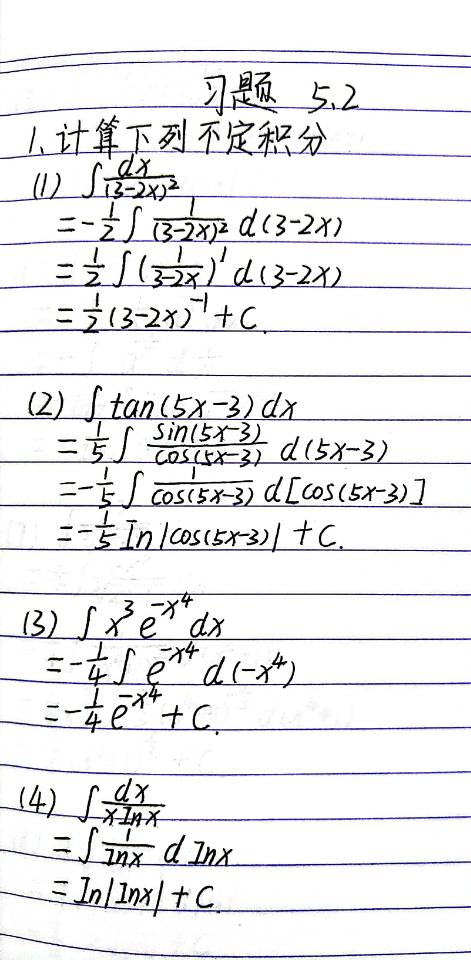 习题 5.2
1、计算下列不定积分
(1) ∫dx/(3-2x)²
=-1/2∫1/(3-2x)² d(3-2x)
=1/2∫(1/(3-2x))' d(3-2x)
=1/2(3-2x)⁻¹+C.
(2) ∫tan(5x-3)dx
=1/5∫sin(5x-3)/cos(5x-3) d(5x-3)
=-1/5∫1/cos(5x-3) d[cos(5x-3)]
=-1/5 In|cos(5x-3)|+C.
(3) ∫x³e^(-x⁴)dx
=-1/4∫e^(-x⁴) d(-x⁴)
=-1/4e^(-x⁴)+C.
(4) ∫dx/(xInx)
=∫1/Inx d Inx
=In|Inx|+C.